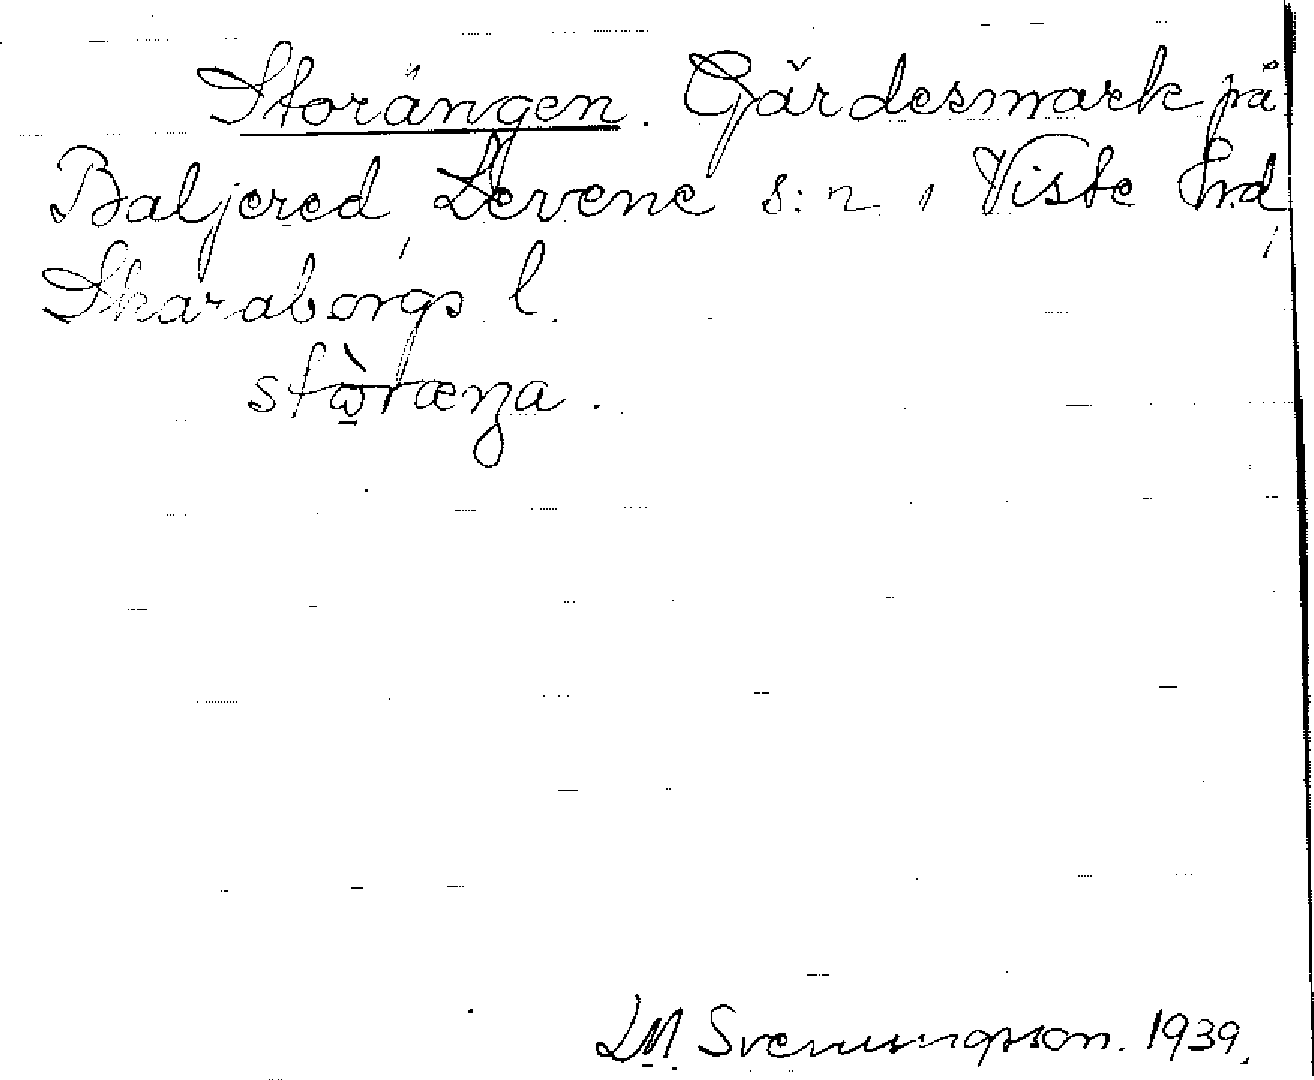 Storängen. Gärdesmark på
Baljered, Levene s:n, Viste hrd,
Skaraborgs l.
L M Svenungsson. 1939.